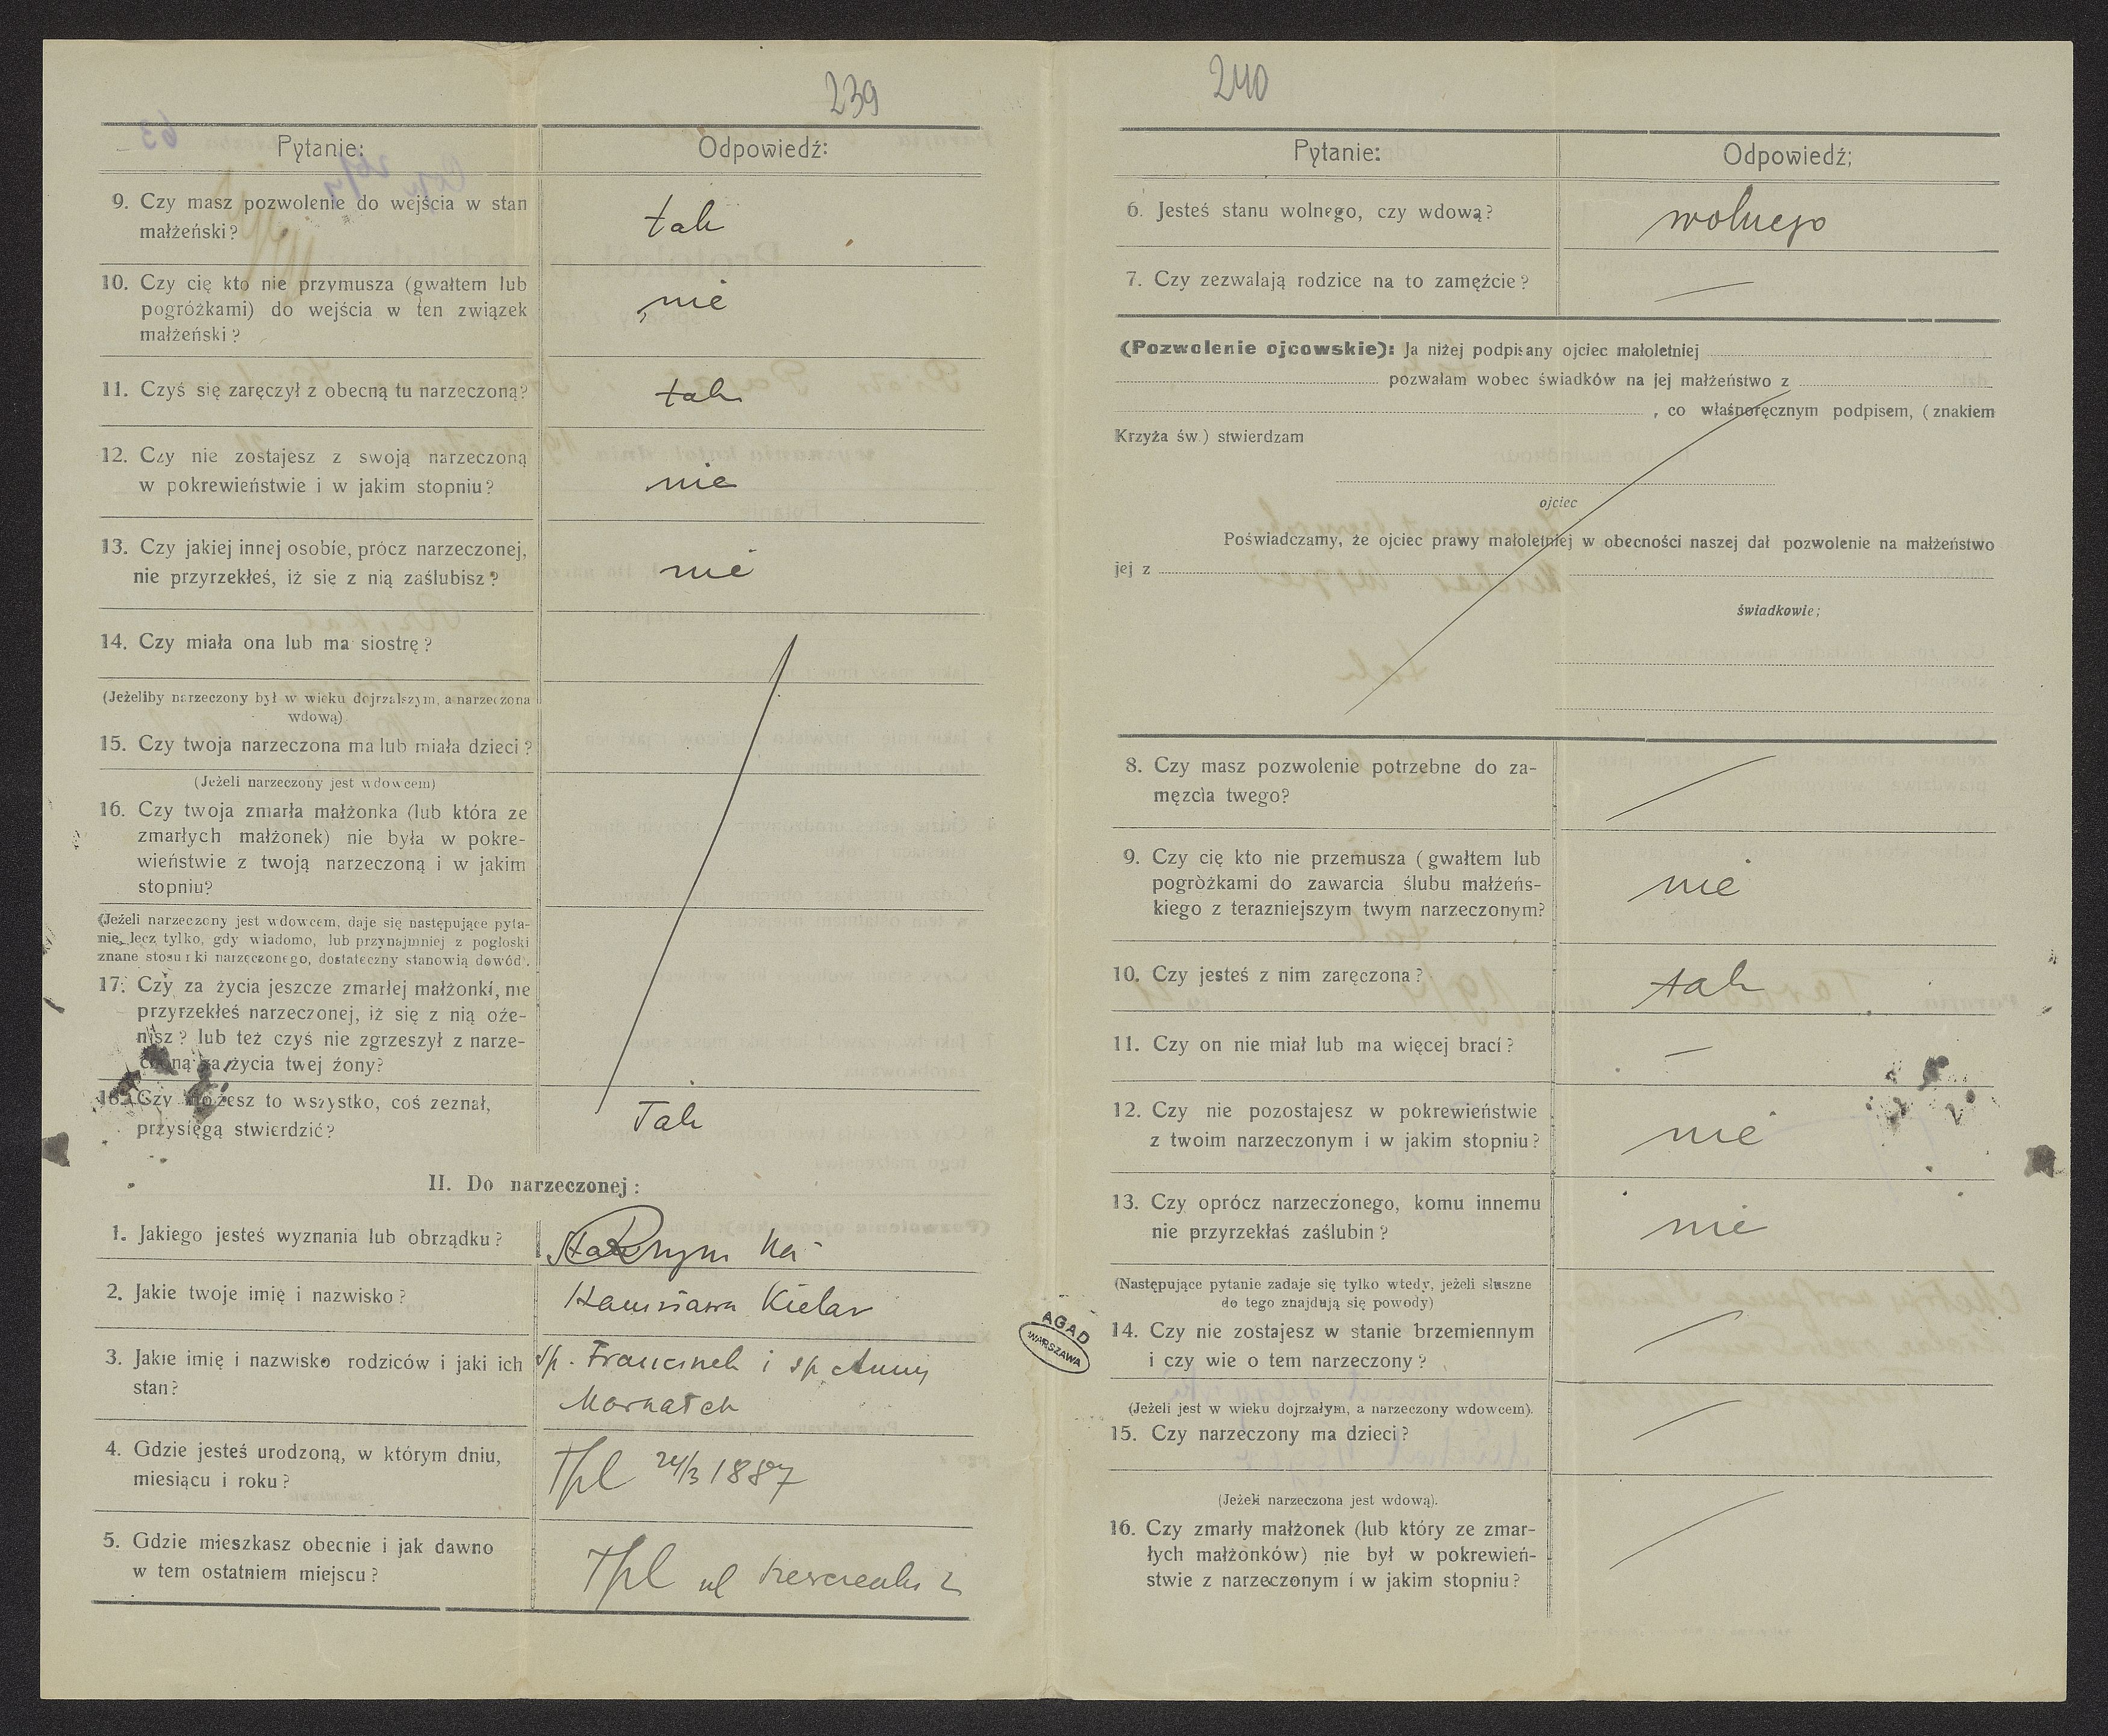 239
Pytanie: Odpowiedź:
9. Czy masz pozwolenie do wejścia w stan
małżeński? tak
10. Czy cię kto nie przymusza (gwałtem lub
pogróżkami) do wejścia w ten związek
małżeński? nie
11. Czyś się zaręczył z obecną tu narzeczoną? tak
12. Czy nie zostajesz z swoją narzeczoną
w pokrewieństwie i w jakim stopniu? nie
13. Czy jakiej innej osobie, prócz narzeczonej,
nie przyrzekłeś, iż się z nią zaślubisz? nie
14. Czy miała ona lub ma siostrę?
(Jeżeliby narzeczony był w wieku dojrzalszym, a narzeczona
wdową)
15. Czy twoja narzeczona ma lub miała dzieci?
(Jeżeli narzeczony jest wdowcem)
16. Czy twoja zmarła małżonka (lub która ze
zmarłych małżonek) nie była w pokre-
wieństwie z twoją narzeczoną i w jakim
stopniu?
(Jeżeli narzeczony jest wdowcem, daje się następujące pyta-
nie, lecz tylko, gdy wiadomo, lub przynajmniej z pogłoski
znane stosunki narzeczonego, dostateczny stanowią dowód.
17. Czy za życia jeszcze zmarłej małżonki, nie
przyrzekłeś narzeczonej, iż się z nią oże-
nisz? lub też czyś nie zgrzeszył z narze-
czoną za życia twej żony?
18. Czy możesz to wszystko, coś zeznał,
przysięgą stwierdzić? Tak
II. Do narzeczonej:
1. Jakiego jesteś wyznania lub obrządku?
2. Jakie twoje imię i nazwisko? Stanisława Kielar
3. Jakie imię i nazwisko rodziców i jaki ich śp. Franciszek i śp Anny
stan?
4. Gdzie jesteś urodzoną, w którym dniu,
miesiącu i roku? Tpl 24/3 1887
5. Gdzie mieszkasz obecnie i jak dawno
w tem ostatniem miejscu? Tpl ul
240
Pytanie: Odpowiedź;
6. Jesteś stanu wolnego, czy wdową? wolnego
7. Czy zezwalają rodzice na to zamęźcie?
(Pozwolenie ojcowskie): Ja niżej podpisany ojciec małoletniej
pozwalam wobec świadków na jej małżeństwo z
, co właśnoręcznym podpisem, (znakiem
Krzyża św.) stwierdzam
ojciec
Poświadczamy, że ojciec prawy małoletniej w obecności naszej dał pozwolenie na małżeństwo
jej z
świadkowie;
8. Czy masz pozwolenie potrzebne do za-
męzcia twego?
9. Czy cię kto nie przemusza (gwałtem lub
pogròżkami do zawarcia ślubu małżeńs-
kiego z terazniejszym twym narzeczonym? nie
10. Czy jesteś z nim zaręczona? tak
11. Czy on nie miał lub ma więcej braci? —
12. Czy nie pozostajesz w pokrewieństwie
z twoim narzeczonym i w jakim stopniu? nie
13. Czy oprócz narzeczonego, komu innemu
nie przyrzekłaś zaślubin? nie
(Następujące pytanie zadaje się tylko wtedy, jeżeli słuszne
do tego znajdują się powody)
14. Czy nie zostajesz w stanie brzemiennym
i czy wie o tem narzeczony?
(Jeżeli jest w wieku dojrzałym, a narzeczony wdowcem).
15. Czy narzeczony ma dzieci?
(Jeżeli narzeczona jest wdową).
16. Czy zmarły małżonek (lub który ze zmar-
łych małżonków) nie był w pokrewień-
stwie z narzeczonym i w jakim stopniu?
AGAD
WARSZAWA